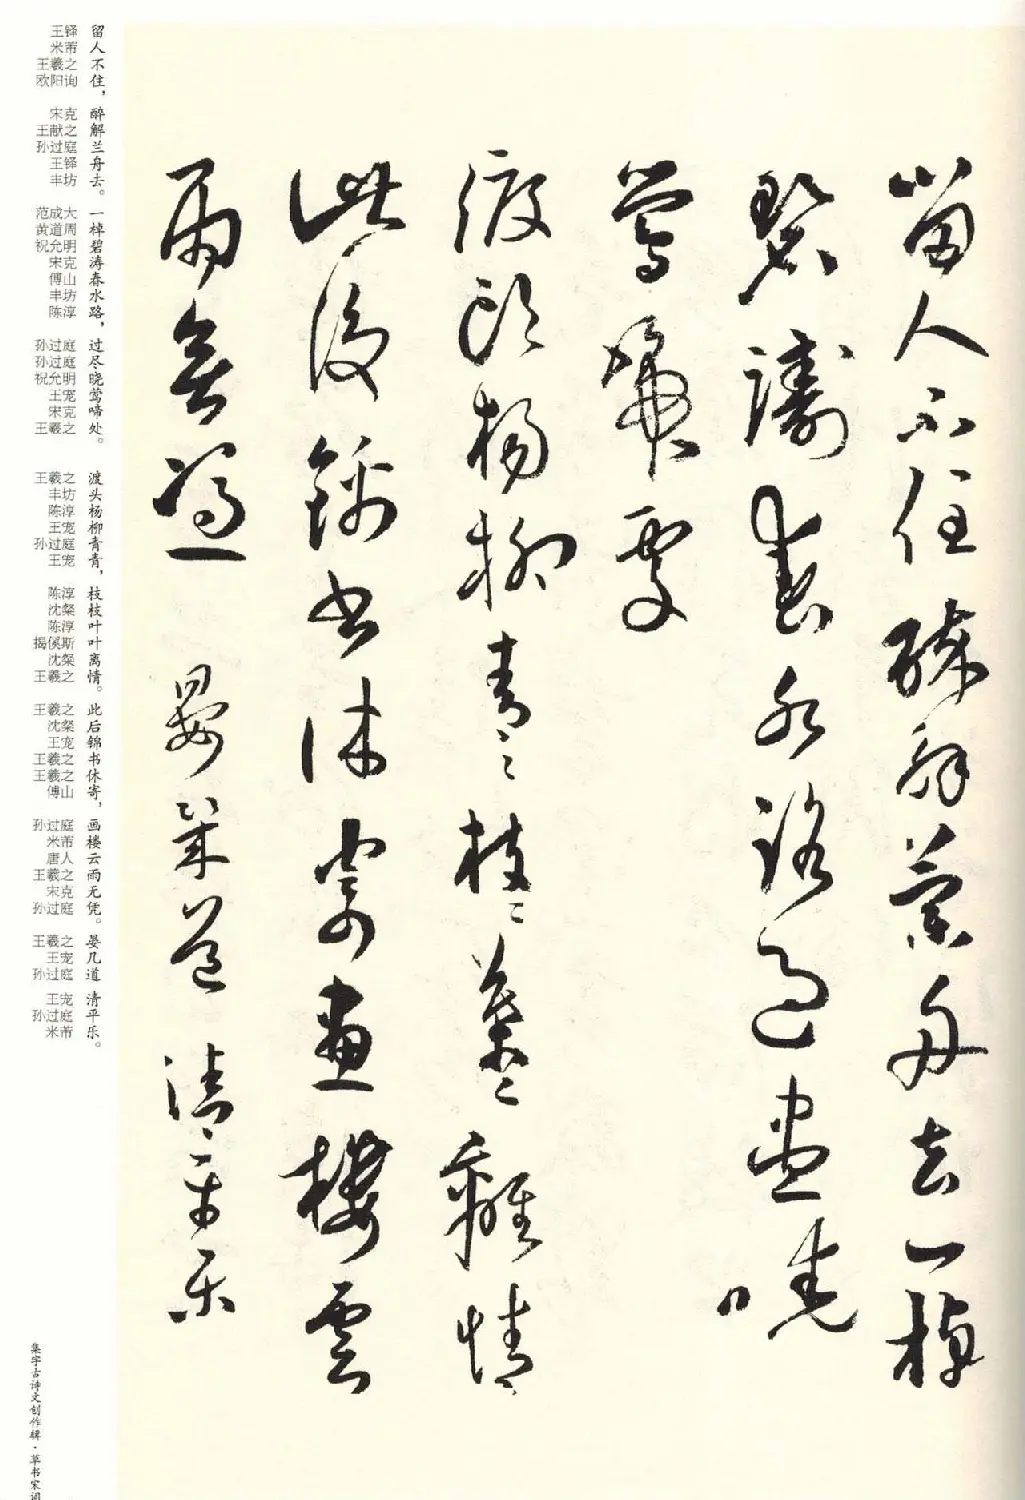 留人不住醉解蘭舟去一棹
碧濤春水路過盡曉
鶯啼處
渡頭楊柳青〻枝〻葉〻離情
此後錦書休寄畫樓雲
雨無憑 晏幾道 清平樂
留人不住，醉解兰舟去。一棹碧涛春水路，过尽晓莺啼处。渡头杨柳青青，枝枝叶叶离情。此后锦书休寄，画楼云雨无凭。晏几道 清平乐。
王铎
米芾
王羲之
欧阳询
宋克
王献之
孙过庭
王铎
丰坊
范成大
黄道周
祝允明
宋克
傅山
丰坊
陈淳
孙过庭
孙过庭
祝允明
王宠
宋克
王羲之
王羲之
丰坊
陈淳
王宠
孙过庭
王宠
陈淳
沈粲
陈淳
揭傒斯
沈粲
王羲之
王羲之
沈粲
王宠
王羲之
王羲之
傅山
孙过庭
米芾
唐人
王羲之
宋克
孙过庭
王羲之
王宠
孙过庭
王宠
孙过庭
米芾
集字古诗文创作辑·草书宋词